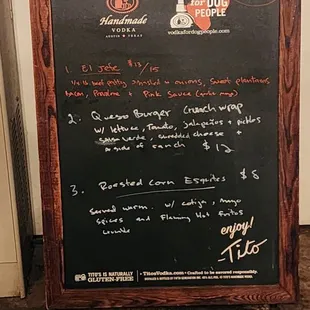 Handmade
VODKA
AUSTIN TEXAS
for DOG
PEOPLE
vodkafordogpeople.com
1. El Jefe $13/15
1/2 lb beef patty smashed w onions, sweet plantains,
Bacon, Provolone + Pink Sauce (spicy mayo)
2. Queso Burger Crunch wrap
w/ lettuce, Tomato, jalapeños + pickles
salsa verde, shredded cheese +
a side of ranch $12
3. Roasted Corn Esquites $8
Served warm w/ cotija, mayo
spices and Flaming Hot Fritos
crumble
enjoy!
-Tito
TITO'S IS NATURALLY
GLUTEN-FREE
TitosVodka.com • Crafted to be savored responsibly.